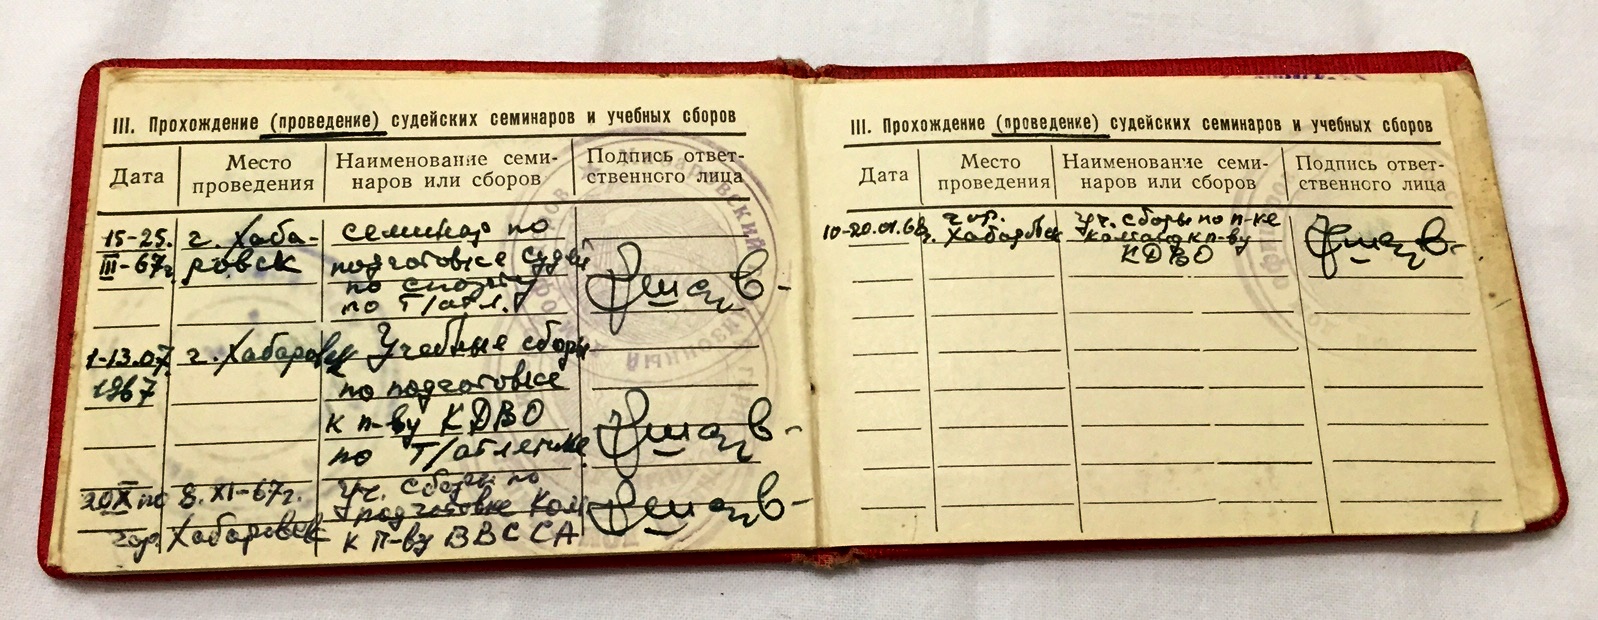 III. Прохождение (проведение) судейских семинаров и учебных сборов
Дата
Место проведения
Наименование семи-
наров или сборов
Подпись ответ-
ственного лица
15-25.
III-67г.
г. Хаба-
ровск
семинар по
подготовке судей
по спорту
по Т/атл.
1-13.07.
1967
г. Хабаровск
Учебные сборы
по подготовке
к п-ву КДВО
по Т/атлетике
20 X по 8. XI-67г.
гор. Хабаровск
Уч. сборы по
подготовке ком
к п-ву ВВС СА
III. Прохождение (проведение) судейских семинаров и учебных сборов
Дата
Место проведения
Наименование семи-
наров или сборов
Подпись ответ-
ственного лица
10-20.01.68
г. Хабаровск
Уч. сборы по п-ке
команд к п-ву
КДВО